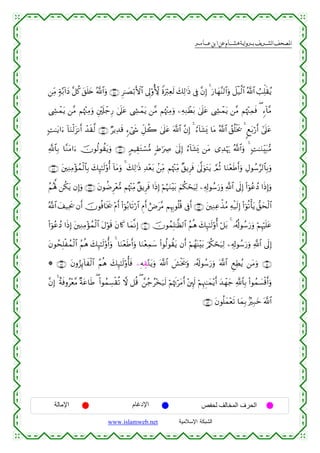 المصحف الشريف برواية هشام عن ابن عامر
يُقَلِّبُ ٱللَّهُ ٱلَّيْلَ وَٱلنَّهَارَ ۚ إِنَّ فِى ذَٰلِكَ لَعِبْرَةً لِّأُو۟لِى ٱلْأَبْصَٰرِ وَٱللَّهُ خَلَقَ كُلَّ دَآبَّةٍ مِّن
مَّآءٍ ۖ فَمِنْهُم مَّن يَمْشِى عَلَىٰ بَطْنِهِۦ وَمِنْهُم مَّن يَمْشِى عَلَىٰ رِجْلَيْنِ وَمِنْهُم مَّن يَمْشِى
عَلَىٰٓ أَرْبَعٍ ۚ يَخْلُقُ ٱللَّهُ مَا يَشَآءُ ۚ إِنَّ ٱللَّهَ عَلَىٰ كُلِّ شَىْءٍ قَدِيرٌ لَّقَدْ أَنزَلْنَآ ءَايَٰتٍ
مُّبَيِّنَٰتٍ ۚ وَٱللَّهُ يَهْدِى مَن يَشَآءُ إِلَىٰ صِرَٰطٍ مُّسْتَقِيمٍ وَيَقُولُونَ ءَامَنَّا بِٱللَّهِ
وَبِٱلرَّسُولِ وَأَطَعْنَا ثُمَّ يَتَوَلَّىٰ فَرِيقٌ مِّنْهُم مِّنۢ بَعْدِ ذَٰلِكَ ۚ وَمَآ أُو۟لَٰٓئِكَ بِٱلْمُؤْمِنِينَ
وَإِذَا دُعُوٓا۟ إِلَى ٱللَّهِ وَرَسُولِهِۦ لِيَحْكُمَ بَيْنَهُمْ إِذَا فَرِيقٌ مِّنْهُم مُّعْرِضُونَ وَإِن يَكُن لَّهُمُ
ٱلْحَقُّ يَأْتُوٓا۟ إِلَيْهِ مُذْعِنِينَ أَفِى قُلُوبِهِم مَّرَضٌ أَمِ ٱرْتَابُوٓا۟ أَمْ يَخَافُونَ أَن يَحِيفَ ٱللَّهُ
عَلَيْهِمْ وَرَسُولُهُۥ ۚ بَلْ أُو۟لَٰٓئِكَ هُمُ ٱلظَّٰلِمُونَ إِنَّمَا كَانَ قَوْلَ ٱلْمُؤْمِنِينَ إِذَا دُعُوٓا۟
إِلَى ٱللَّهِ وَرَسُولِهِۦ لِيَحْكُمَ بَيْنَهُمْ أَن يَقُولُوا۟ سَمِعْنَا وَأَطَعْنَا ۚ وَأُو۟لَٰٓئِكَ هُمُ ٱلْمُفْلِحُونَ
وَمَن يُطِعِ ٱللَّهَ وَرَسُولَهُۥ وَيَخْشَ ٱللَّهَ وَيَتَّقِهِۦ فَأُو۟لَٰٓئِكَ هُمُ ٱلْفَآئِزُونَ ۞
وَأَقْسَمُوا۟ بِٱللَّهِ جَهْدَ أَيْمَٰنِهِمْ لَئِنْ أَمَرْتَهُمْ لَيَخْرُجُنَّ ۖ قُل لَّا تُقْسِمُوا۟ ۖ طَاعَةٌ مَّعْرُوفَةٌ ۚ إِنَّ
ٱللَّهَ خَبِيرٌۢ بِمَا تَعْمَلُونَ
الحرف المخالف لحفص الإدغام الإمالة
الشبكة الإسلامية www.islamweb.net